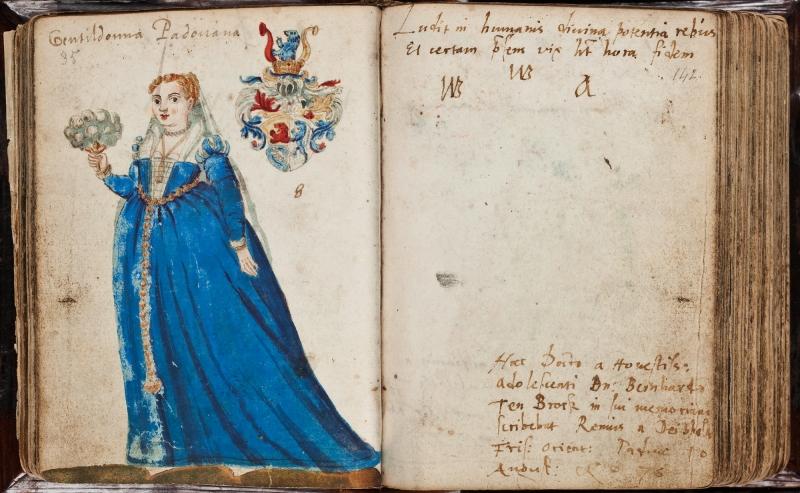 Gentildonna Padouana
85
8
Ludit in humanis divina potentia rebus
Et certam p̄sem vix h̄t hora fidem
142
W W A
Haec Docto a Honestiss:
adolescenti Dn: Bernhardo
Ten Broek in sui memoriam
scribebat Remus a
Fris: orient: Paduae 10
August: